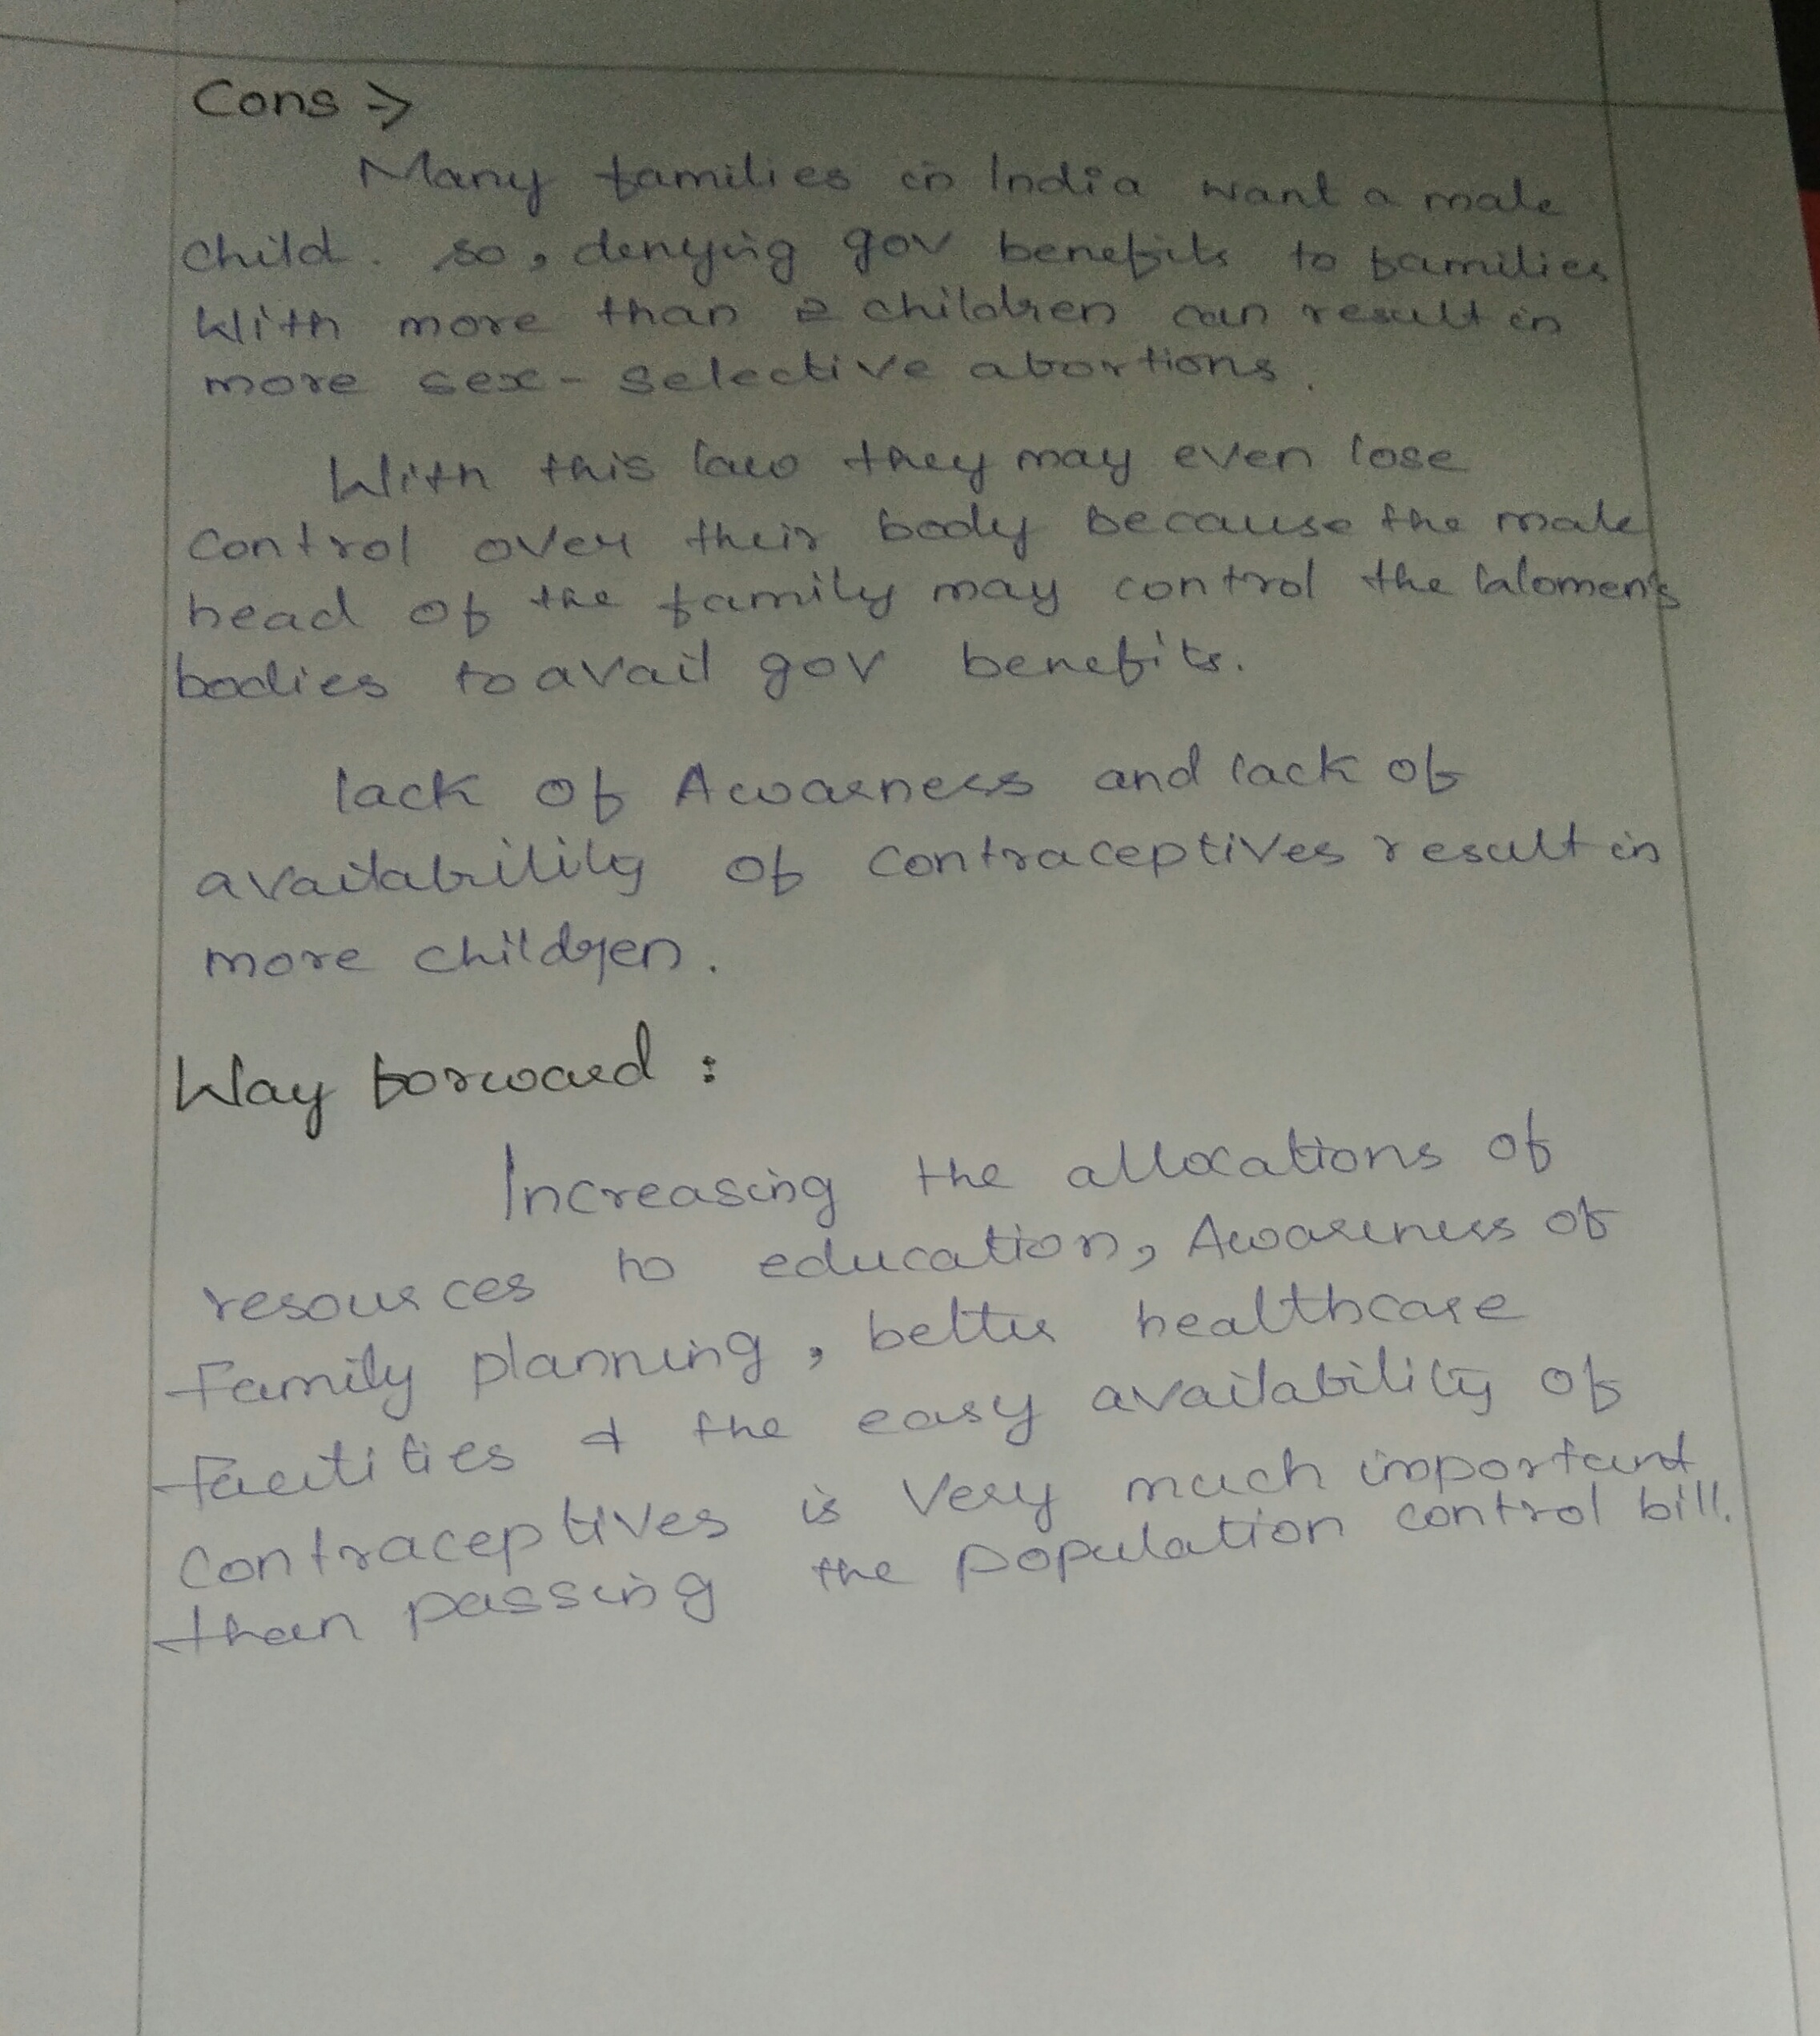 Cons →
Many families in India want a male
child. so, denying gov benefits to families
With more than 2 children can result in
more sex- selective abortions.
With this law they may even lose
control over their body because the male
head of the family may control the Women's
bodies to avail gov benefits.
lack of Awarness and lack of
availability of contraceptives result in
more children.
Way forward :
Increasing the allocations of
resources to education, Awareness of
Family planning, better healthcare
facilities & the easy availability of
contraceptives is very much important
than passing the population control bill.